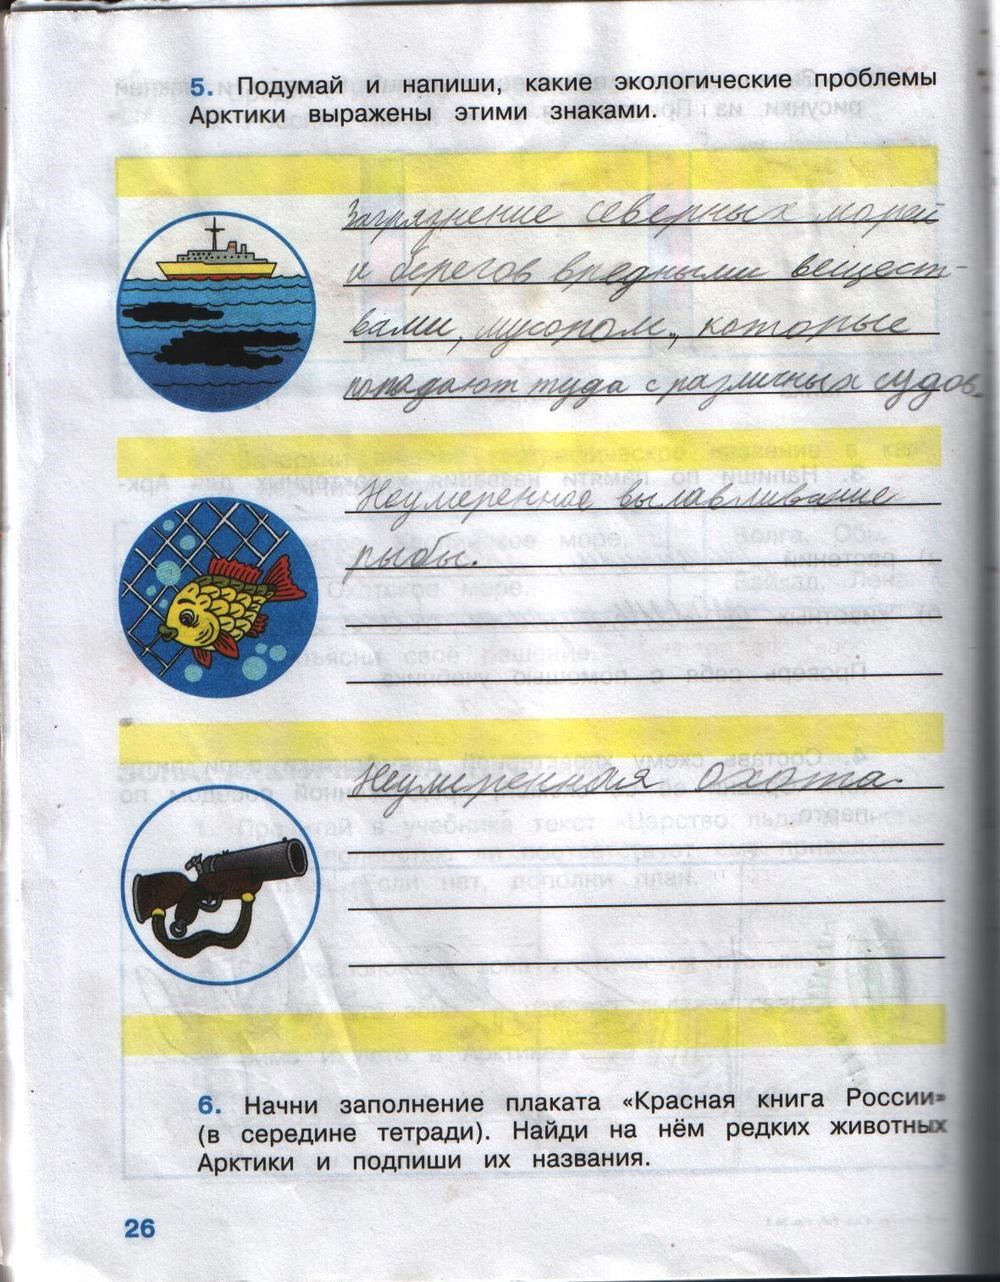 5. Подумай и напиши, какие экологические проблемы
Арктики выражены этими знаками.
Загрязнение северных морей
и берегов вредными вещест-
вами, мусором, которые
попадают туда с различных судов.
Неумеренное вылавливание
рыбы.
Неумеренная охота.
6. Начни заполнение плаката «Красная книга России»
(в середине тетради). Найди на нём редких животных
Арктики и подпиши их названия.
26